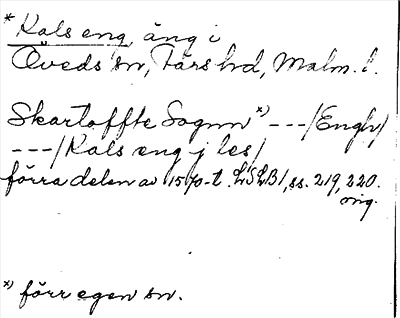 *Kals eng, äng i
Öveds sn, Färs hd, Malm. l.
Skartoffte Sognn *) --- /Enghr/
--- /Kals eng j les/
förra delen av 1570-t. LSLB1, ss. 219, 220.
orig.
*) förr egen sn.